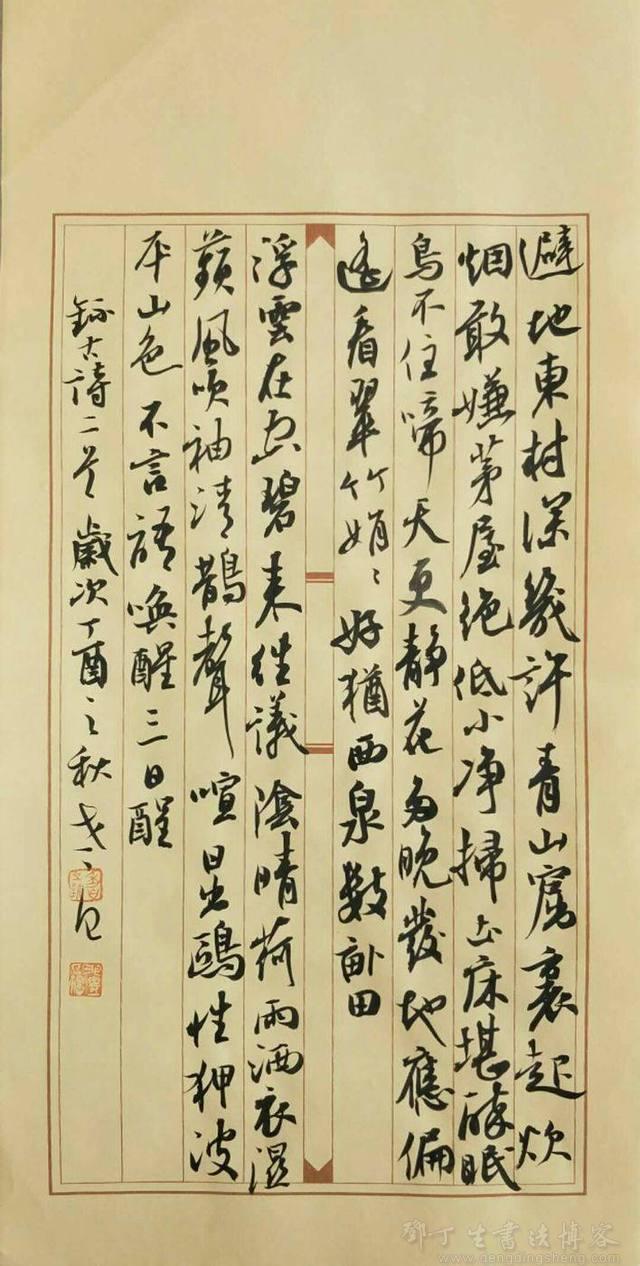 避地東村深幾許青山窟裏起炊
烟敢嫌茅屋绝低小净掃土床堪醉眠
鳥不住啼天更静花多晚發地應偏
遙看翠竹娟〻好猶西泉數畝田
浮雲在空碧来往議陰晴荷雨洒衣濕
蘋風吹袖清鵲聲喧日出鷗性狎波
平山色不言語喚醒三日酲
錄古詩二首歲次丁酉之秋
鄧丁生書法博客
www.dengdingsheng.com